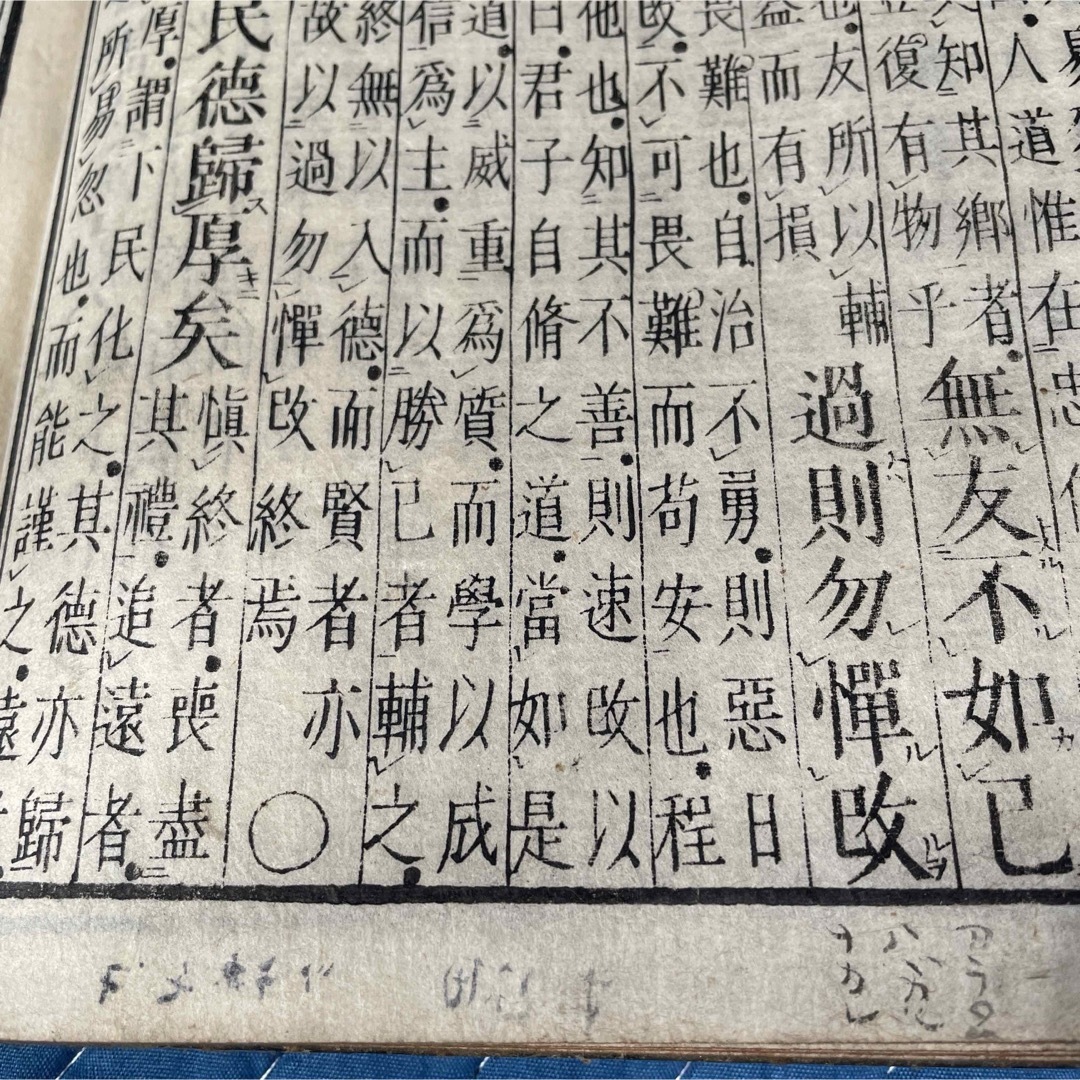 人道惟在忠
知其鄉者
復有物乎
無友不如已
也友所以輔
益而有損
過則勿憚改
畏難也自治不勇則惡日
改不可畏難而苟安也程
他也知其不善則速改以
曰君子自脩之道當如是
道以威重爲質而學以成
信爲主而以勝已者輔之
終無以入德而賢者亦
故以過勿憚改終焉
○
民德歸厚矣
愼終者喪盡
其禮追遠者
厚謂下民化之其德亦歸
所易忽也而能謹之遠